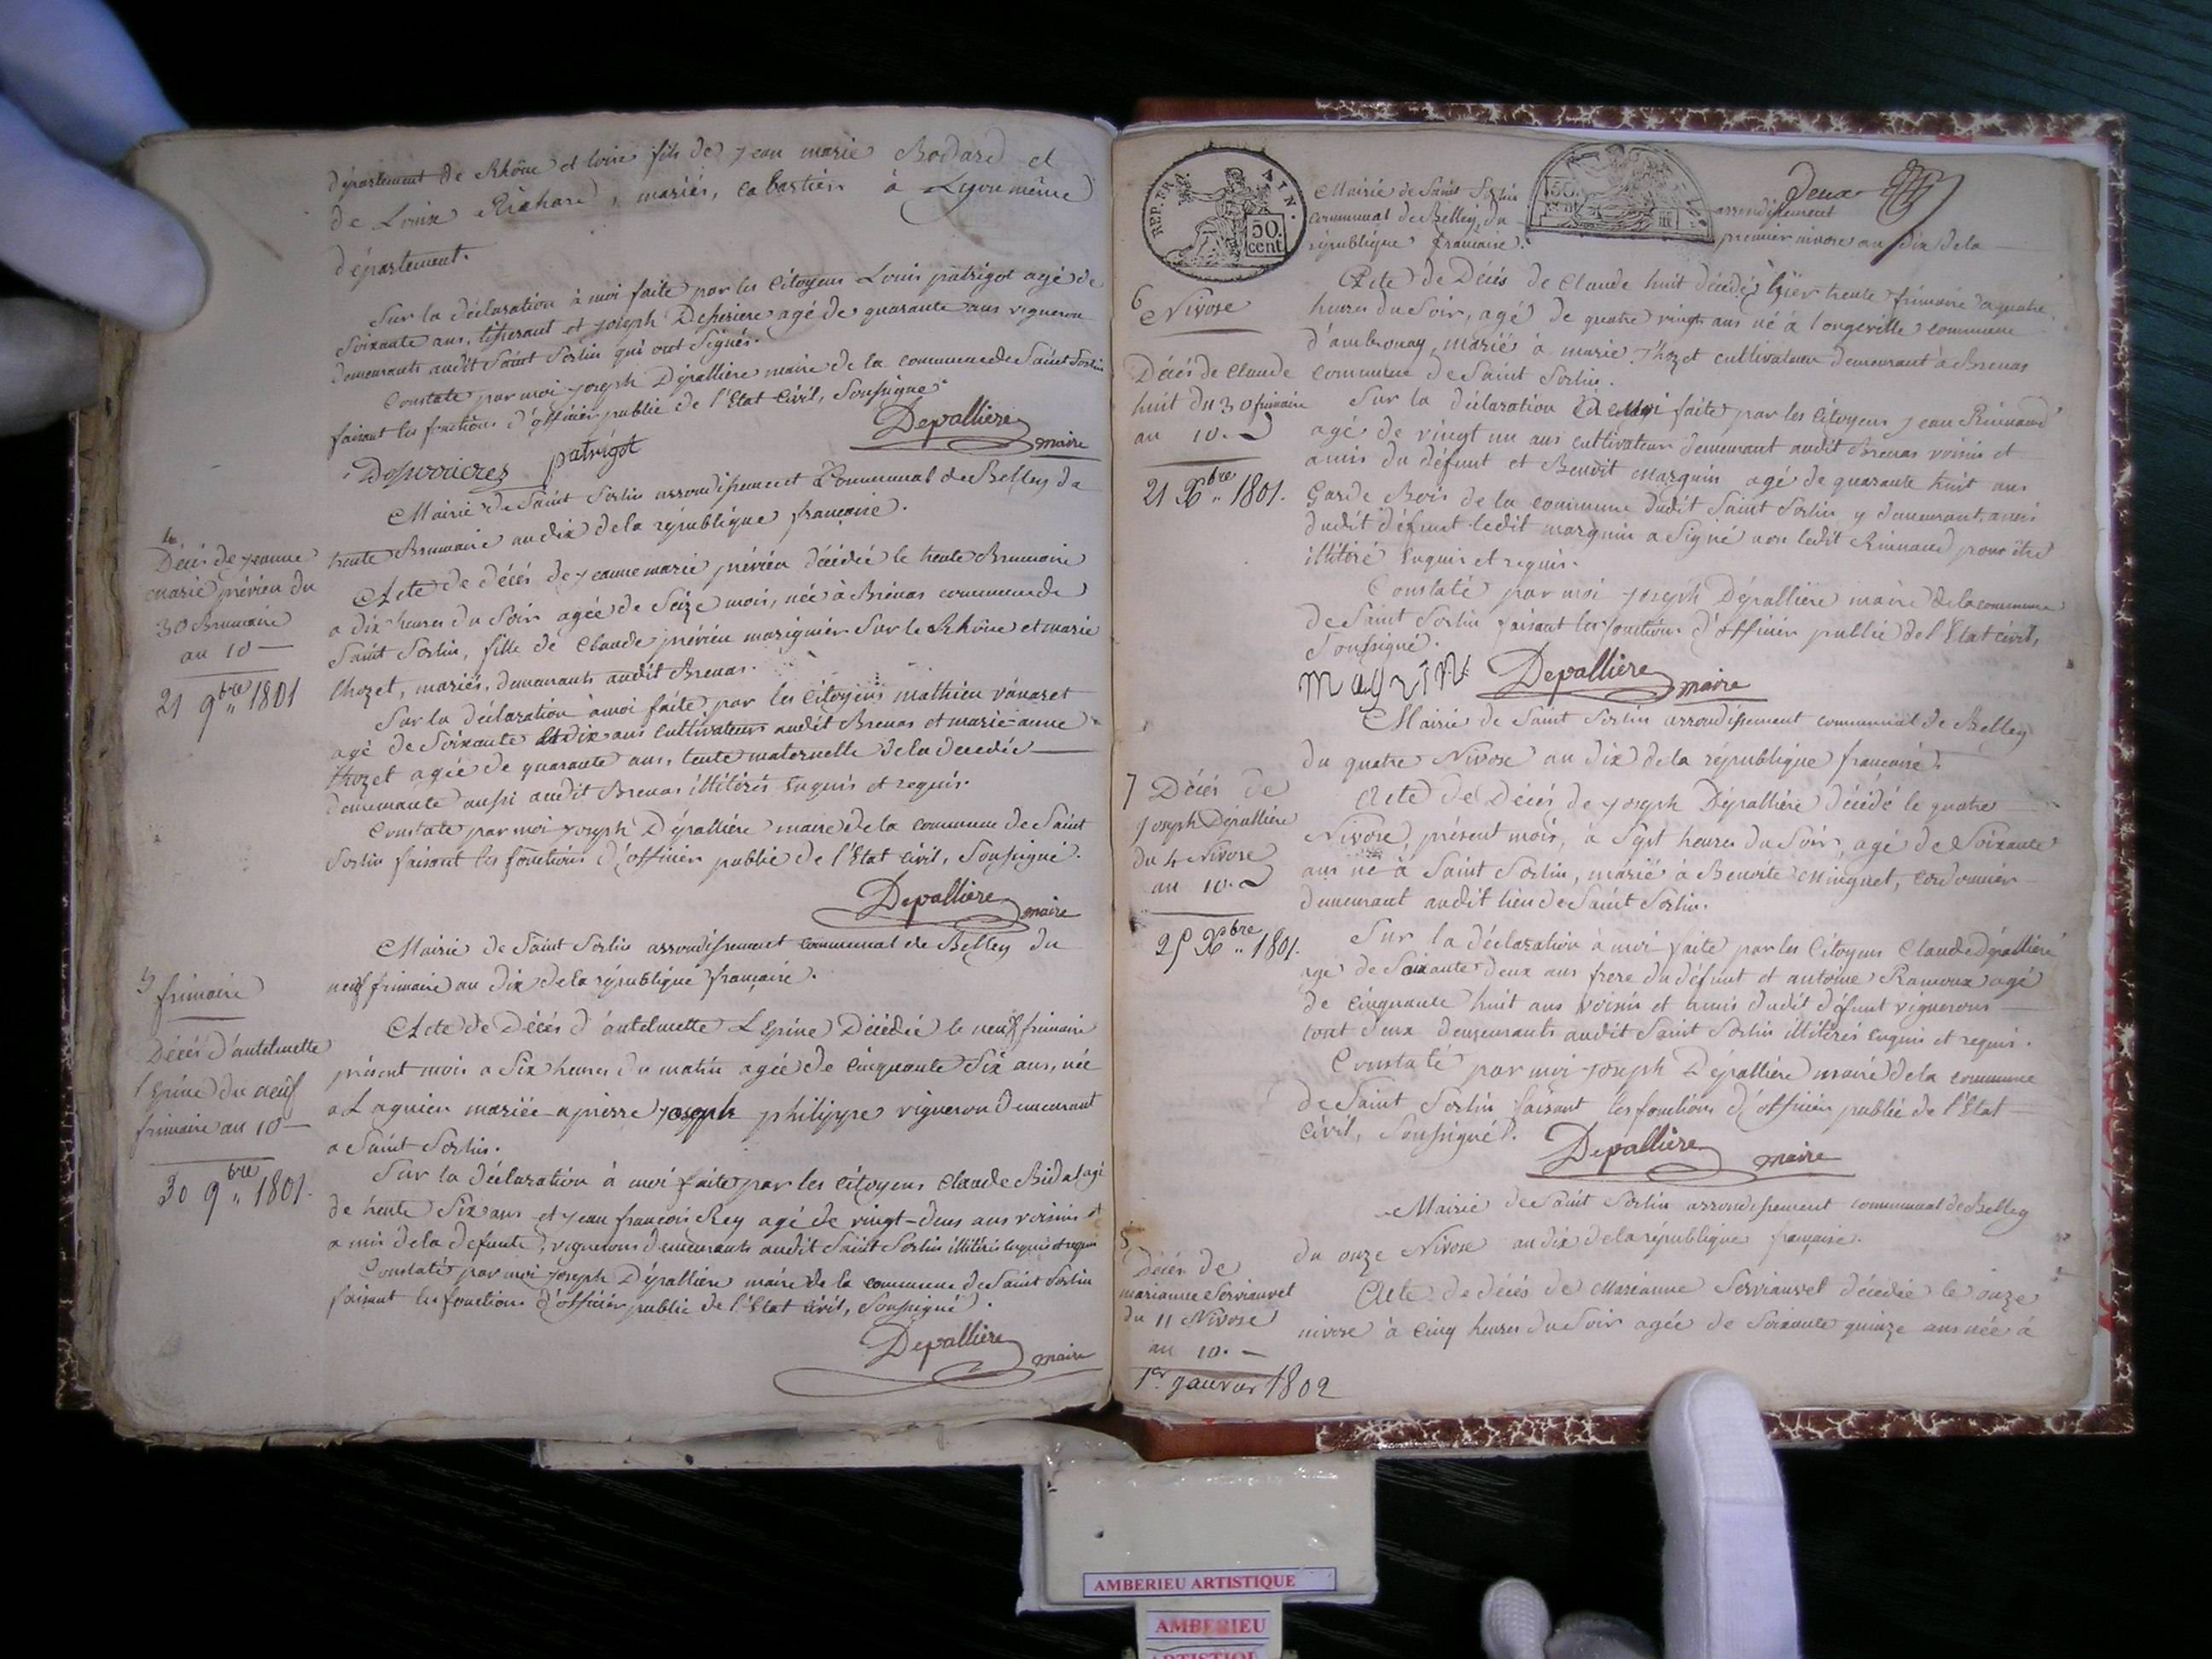 département de Rhône et loire fils de jean marie Bodard et
de Louise Richard, mariés, cabartiers à Lyon même
département.
Sur la déclaration à moi faite par les Citoyens Louis patrigot agé de
Soixante ans, tisserant et joseph agé de quarante ans vigneron
demeurants audit Saint Sorlin qui ont Signés.
Constaté par moi joseph Dépallière maire de la commune de Saint Sorlin
faisant les fonctions d'officier public de l'Etat Civil, Soussigné.
Depalliere maire
patrigot
Mairie de Saint Sorlin arrondissement Communal de Belley du
trente Brumaire an dix de la république française.
4
Décès de jeanne
marie prévieu du
30 Brumaire
an 10
21 9bre 1801
Acte de décès de jeanne marie prévieu décédée le trente Brumaire
a dix heures du Soir agée de Seize mois, née à Brenas commune de
Saint Sorlin, fille de Claude prévieu marignier Sur le Rhône et marie
thozet, mariés, demeurants audit Brenas.
Sur la déclaration à moi faite par les Citoyens mathieu
agé de Soixante et dix ans Cultivateur audit Brenas et marie-anne
thozet agée de quarante ans, tente maternelle de la decedée
demeurante aussi audit Brenas illitérés enquis et requis.
Constaté par moi joseph Dépallière maire de la commune de Saint
Sorlin faisant les fonctions d'officier public de l'Etat civil, Soussigné.
Depalliere maire
Mairie de Saint Sorlin arrondissement communal de Belley du
neuf frimaire an dix de la république française.
5
frimaire
Décès d'antelmette
l'Epine du neuf
frimaire an 10
30 9bre 1801.
Acte de Décès d'antelmette L'Epine Décédée le neuf frimaire
présent mois a Six heures du matin agée de Cinquante Six ans, née
a Lagnieu mariée a pierre joseph philippe vigneron demeurant
a Saint Sorlin.
Sur la déclaration à moi faite par les Citoyens Claude Bidal agé
de trente Six ans et jean françois Rey agé de vingt-deux ans voisins et
amis de la defunte, vignerons demeurants audit Saint Sorlin illitérés enquis et requis
Constaté par moi joseph Dépallière maire de la commune de Saint Sorlin
faisant les fonctions d'officier public de l'Etat civil, Soussigné.
Depalliere maire
REP. FRA.
50. cent
50 cent
deux
Mairie de Saint Sorlin arrondissement
communal de Belley, du premier nivose an dix de la
république française.
6
Nivose
Décès de Claude
huit du 30 frimaire
an 10.
21 Xbre 1801.
Acte de Décès de Claude huit décédé hier trente frimaire a quatre
heures du Soir, agé de quatre vingt ans né à longeville commune
d'ambronay, marié à marie thozet cultivateur demeurant à Brenas
commune de Saint Sorlin.
Sur la déclaration à moi faite par les Citoyens jean
agé de vingt un ans cultivateur demeurant audit Brenas voisin et
amis du défunt et Benoit marguin agé de quarante huit ans
Garde Bois de la commune dudit Saint Sorlin y demeurant, amis
dudit défunt ledit marguin a Signé non ledit pour être
illitéré enquis et requis.
Constaté par moi joseph Dépallière maire de la commune
de Saint Sorlin faisant les fonctions d'officier public de l'Etat civil,
Soussigné.
Depalliere maire
Mairie de Saint Sorlin arrondissement communal de Belley
du quatre Nivose an dix de la république française.
7 Décès de
joseph Dépallière
du 4 Nivose
an 10.
25 Xbre 1801.
Acte de Décès de joseph Dépallière décédé le quatre
Nivose, présent mois, à Sept heures du Soir, agé de Soixante
ans né à Saint Sorlin, marié à Benoite Minguet, cordonnier
demeurant audit lieu de Saint Sorlin.
Sur la déclaration à moi faite par les Citoyens Claude dépallière
agé de Soixante deux ans frere du défunt et antoine Ramoux agé
de Cinquante huit ans voisin et amis dudit défunt vignerons
tout deux demeurants audit Saint Sorlin illitérés enquis et requis.
Constaté par moi joseph Dépallière maire de la commune
de Saint Sorlin faisant les fonctions d'officier public de l'Etat
civil, Soussigné.
Depalliere maire
Mairie de Saint Sorlin arrondissement communal de Belley
du onze Nivose an dix de la république française.
Décès de
marianne
du 11 Nivose
an 10.
1er janvier 1802
Acte de décès de Marianne décédée le onze
nivose à Cinq heures du Soir agée de Soixante quinze ans née à
AMBERIEU ARTISTIQUE
AMBERIEU
ARTISTIQUE